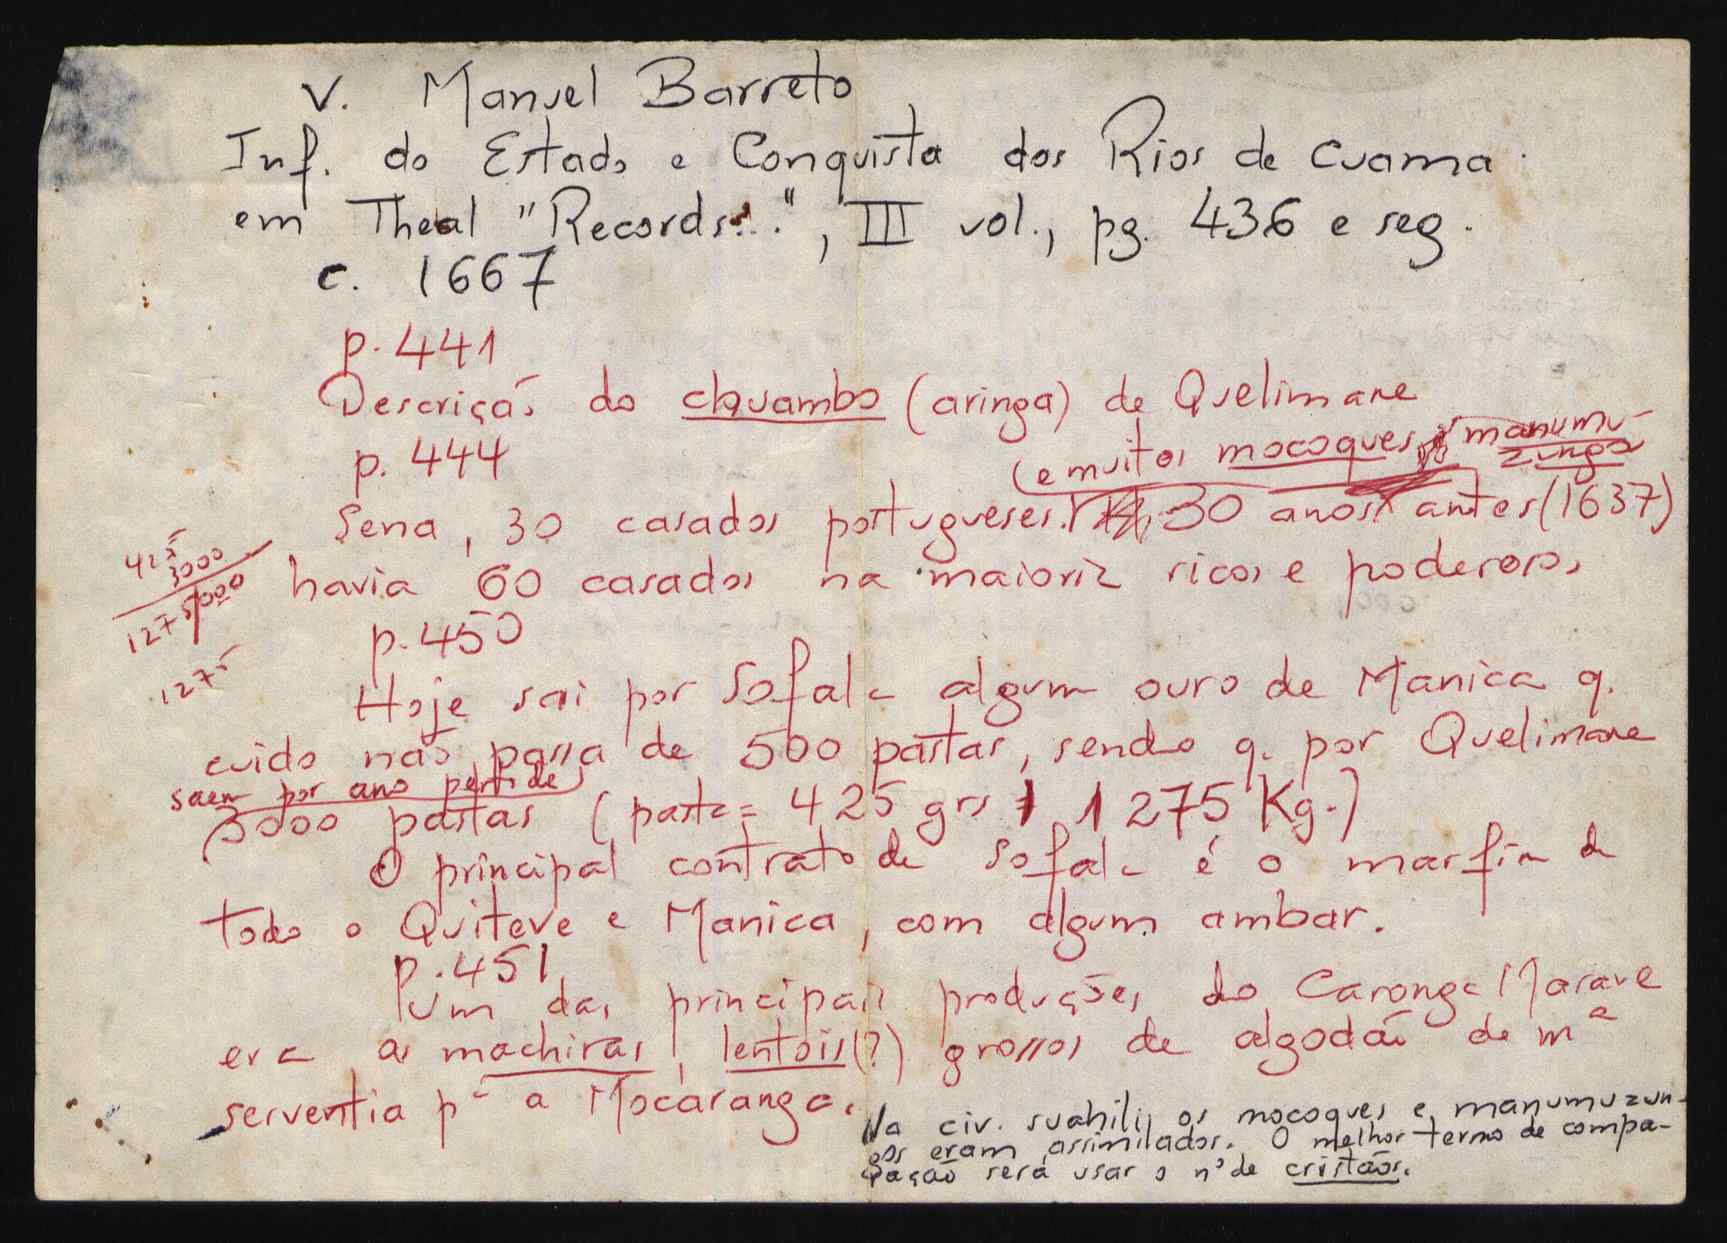 V. Manuel Barreto
Inf. do Estado e Conquista dos Rios de Cuama
em Theal "Records...", III vol., pg. 436 e seg.
c. 1667
p. 441
Descrição do chuambo (aringa) de Quelimane
p. 444
(e muitos mocoques e manumu-
zungos
Sena, 30 casados portugueses. 30 anos antes (1637)
havia 60 casados na maioria ricos e poderosos
425
3000
1275000
1275
p. 450
Hoje sai por Sofala algum ouro de Manica q.
cuido não passa de 500 pastas, sendo q. por Quelimane
saem por ano perto de
3000 pastas (pasta = 425 grs 1 275 Kg.)
O principal contrato de Sofala é o marfim de
todo o Quiteve e Manica, com algum ambar.
p. 451
Um das principais produções do Caronga Marave
era as machiras, lentois (?) grossos de algodão de mª
serventia pª a Mocaranga.
Na civ. suahili, os mocoques e manumuzun-
gos eram assimilados. O melhor termo de compa-
ração será usar o nº de cristãos.